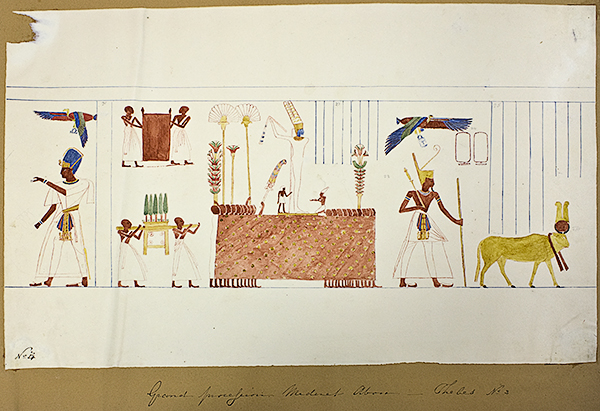 No. 4
Grand procession Medinet Abou — Thebes No. 3